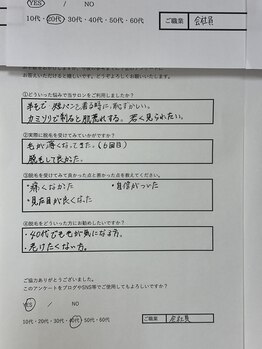 YES / NO
10代・20代・30代・40代・50代・60代
ご職業 会社員
お答えいただけると嬉しいです。どうぞよろしくお願いいたします。
①どういった悩みで当サロンをご利用しましたか?
半そで 短パンを着る時に、恥ずかしい。
カミソリで剃ると肌荒れする。若く見られたい。
②実際に脱毛を受けてみていかがですか?
毛が薄くなってきた。(6回目)
脱毛して良かった。
③脱毛を受けてみて良かった点と悪かった点を教えてください。
・痛くなかった ・自信がついた
・見た目が良くなった
④脱毛をどういった方にお勧めしたいですか?
・40代でも毛が気になる方。
・老けたくない方。
ご協力ありがとうございました。
このアンケートをブログやSNS等でご使用してもよろしいですか?
YES / NO
10代・20代・30代・40代・50代・60代
ご職業 会社員